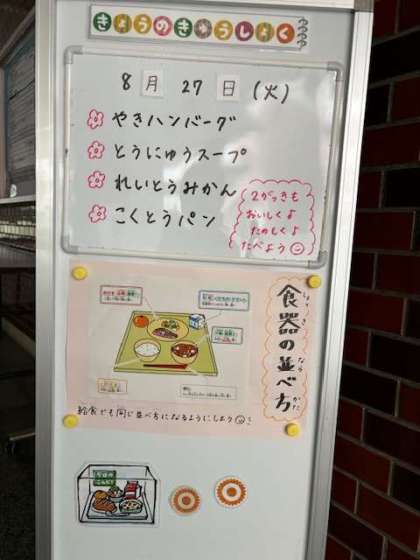 きょうのきゅうしょく
8月27日(火)
やきハンバーグ
とうにゅうスープ
れいとうみかん
こくとうパン
2がっきも
おいしくよ
たのしくよ
たべよう
食器の並べ方
しょっき
なら
かた
給食でも同じ並べ方になるようにしよう
今日の
こんだて